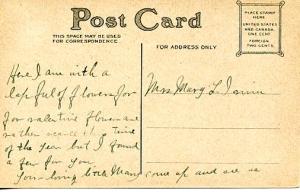 Post Card
THIS SPACE MAY BE USED
FOR CORRESPONDENCE
FOR ADDRESS ONLY
PLACE STAMP
HERE
UNITED STATES
AND CANADA
ONE CENT
FOREIGN
TWO CENTS
Here I am with a
lap full of flowers for
for valentine flowers are
rather scarce this time
of the year but I found
a few for you
come up and see us
Miss Mary L